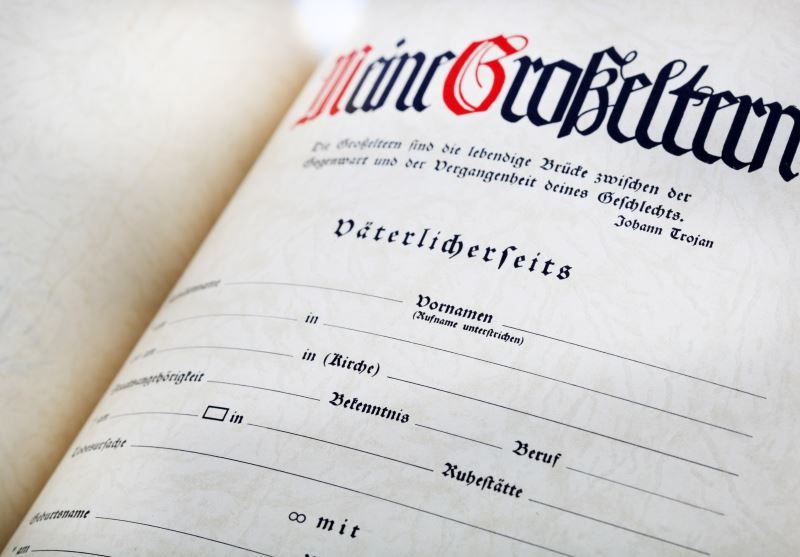 Meine Großeltern
Die Großeltern sind die lebendige Brücke zwischen der
Gegenwart und der Vergangenheit deines Geschlechts.
Johann Trojan
Väterlicherseits
Familienname Vornamen
(Rufname unterstrichen)
am in
am in (Kirche)
Staatsangehörigkeit Bekenntnis Beruf
am in
Todesursache Ruhestätte
∞ mit
Geburtsname
* am